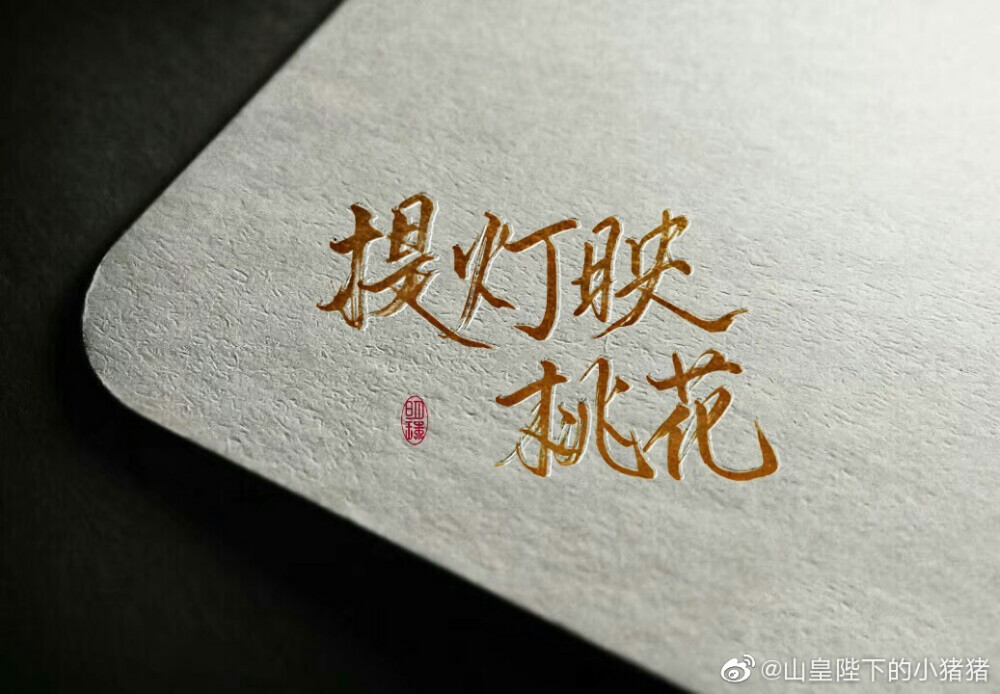 提灯映
桃花
@山皇陛下的小猪猪